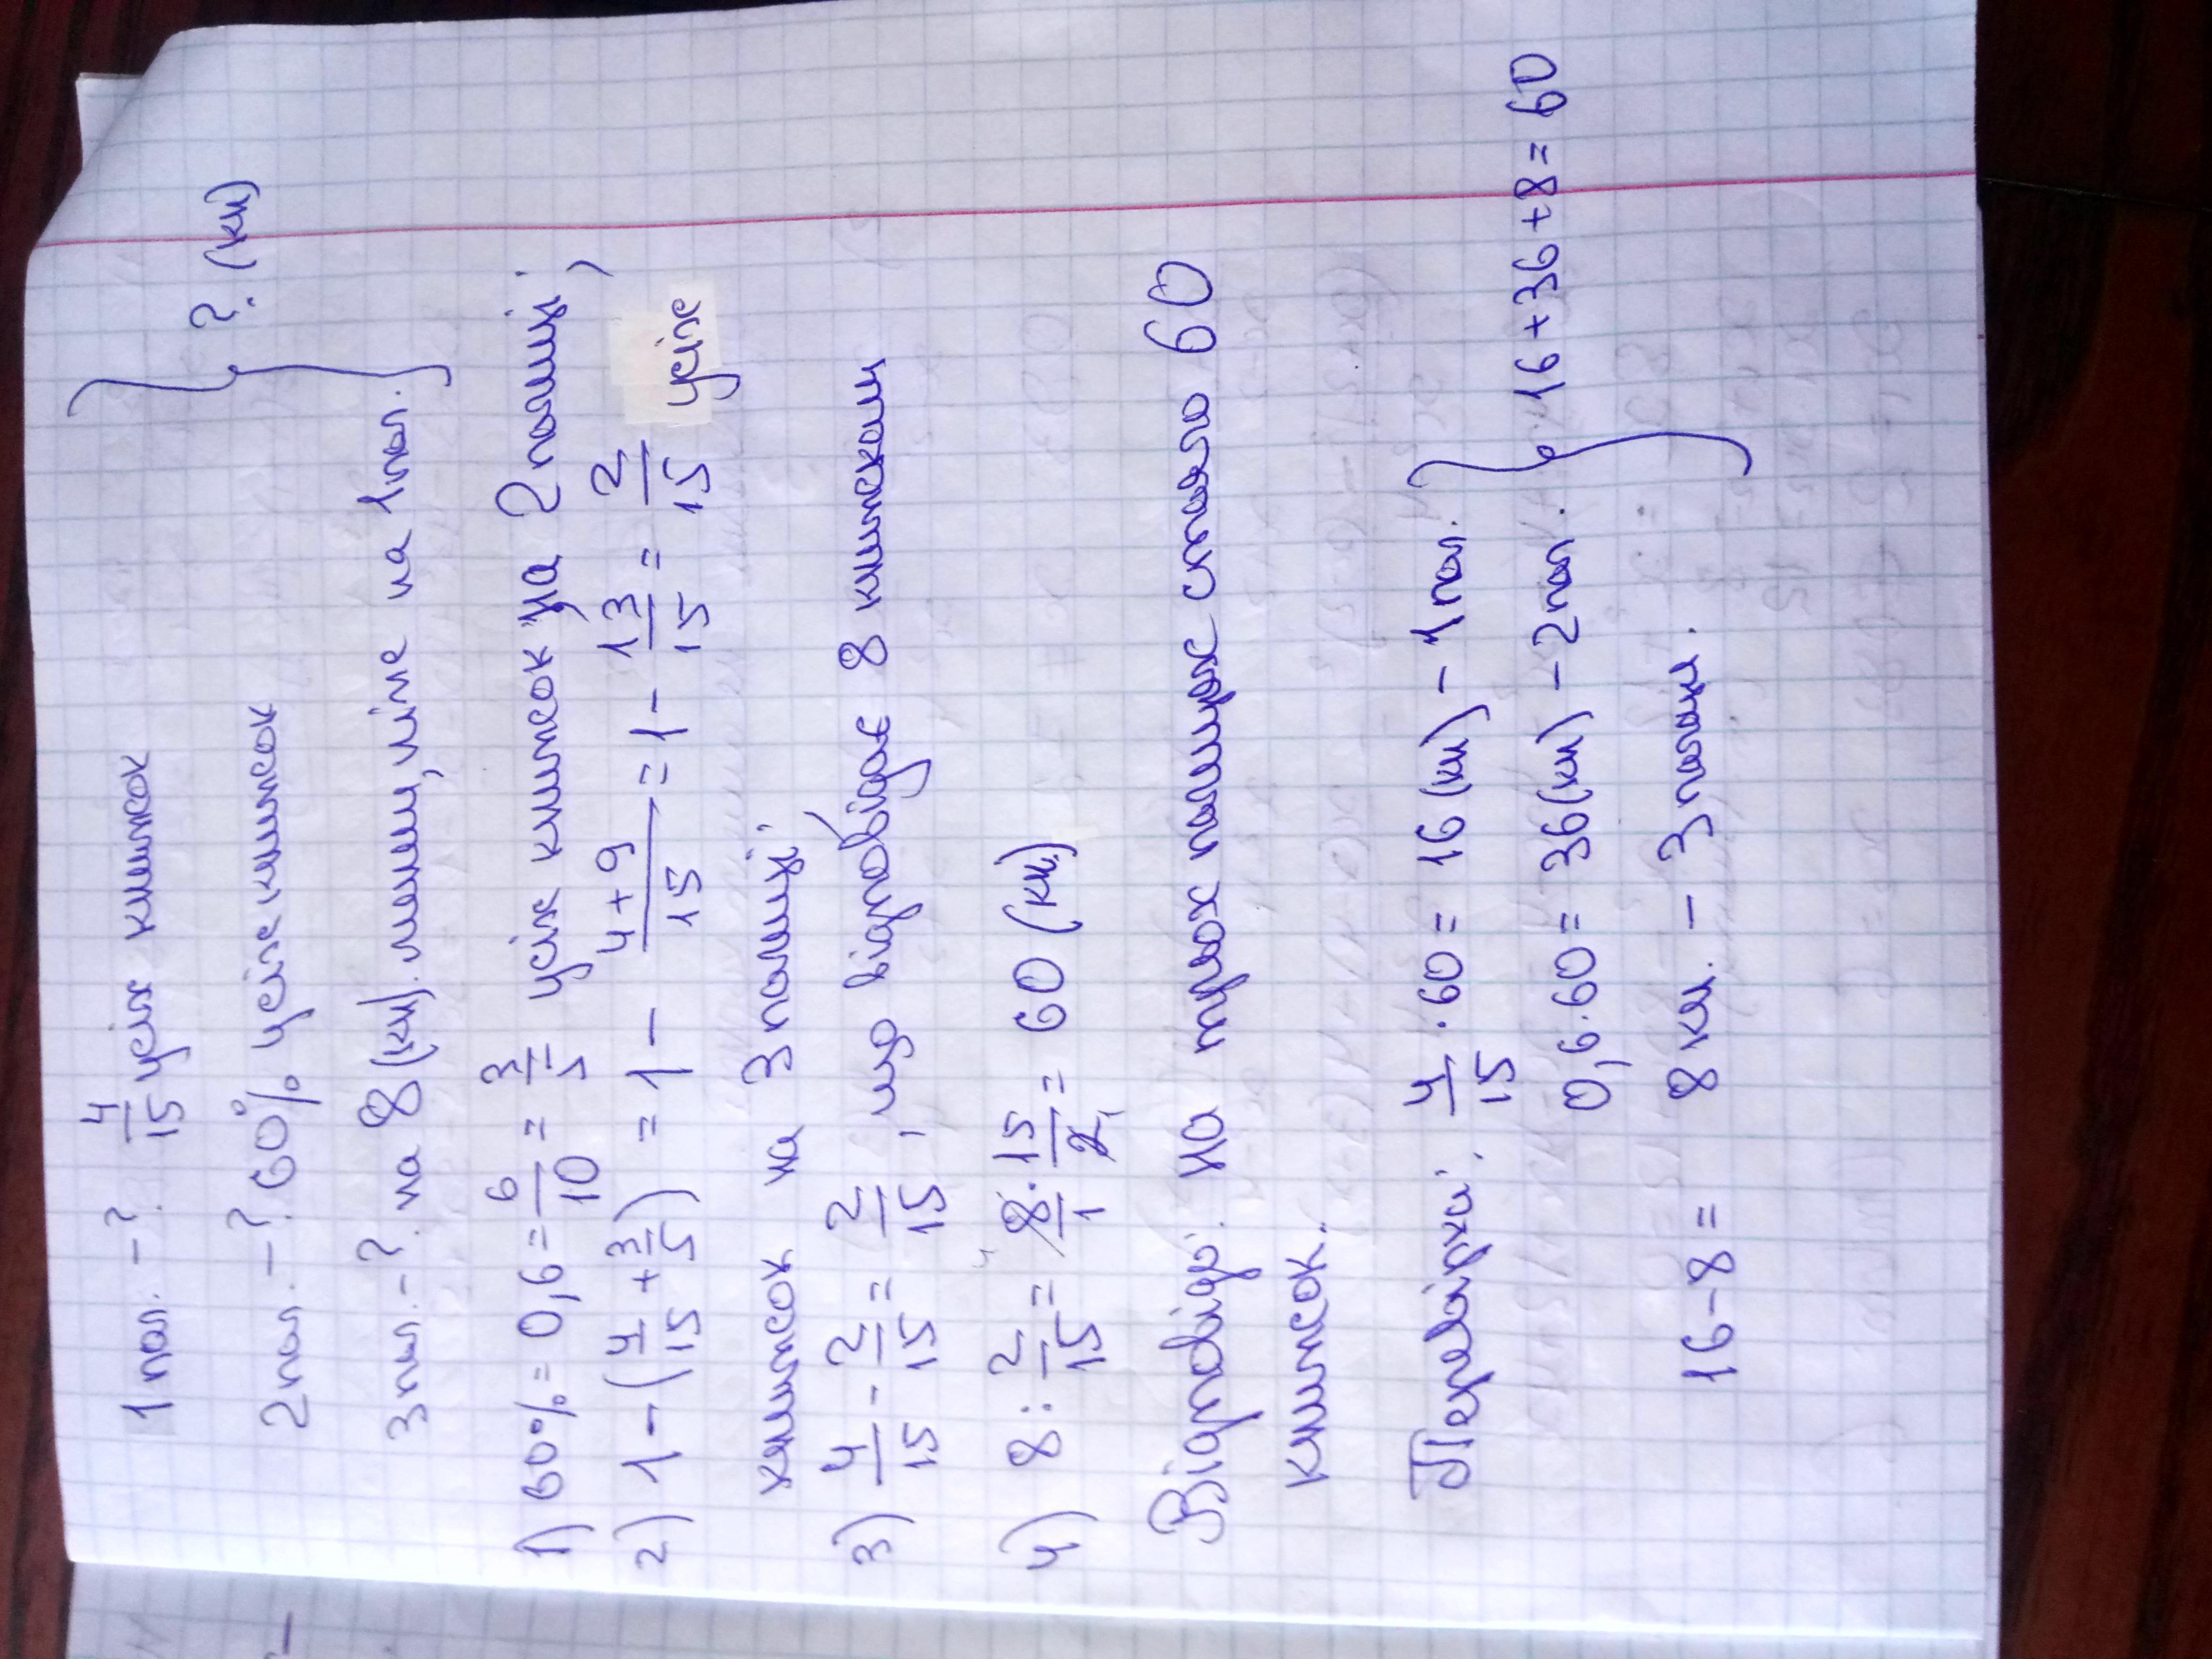 1 пол. - ? 4/15 усіх книжок
2 пол. - ? 60% усіх книжок
3 пол. - ? на 8 (кн). менш, ніж на 1 пол.
} ? (кн)
1) 60% = 0,6 = 6/10 = 3/5 усіх книжок на 2 полиці;
2) 1 - (4/15 + 3/5) = 1 - 4+9/15 = 1 - 13/15 = 2/15 усіх
книжок на 3 полиці.
3) 4/15 - 2/15 = 2/15, що відповідає 8 книжкам
4) 8 : 2/15 = 8/1 · 15/2 = 60 (кн.)
Відповідь: на трьох полицях стояло 60
книжок.
Перевірка: 4/15 · 60 = 16 (кн) - 1 пол.
0,6 · 60 = 36 (кн) - 2 пол.
} 16 + 36 + 8 = 60
16 - 8 = 8 кн. - 3 полиц.